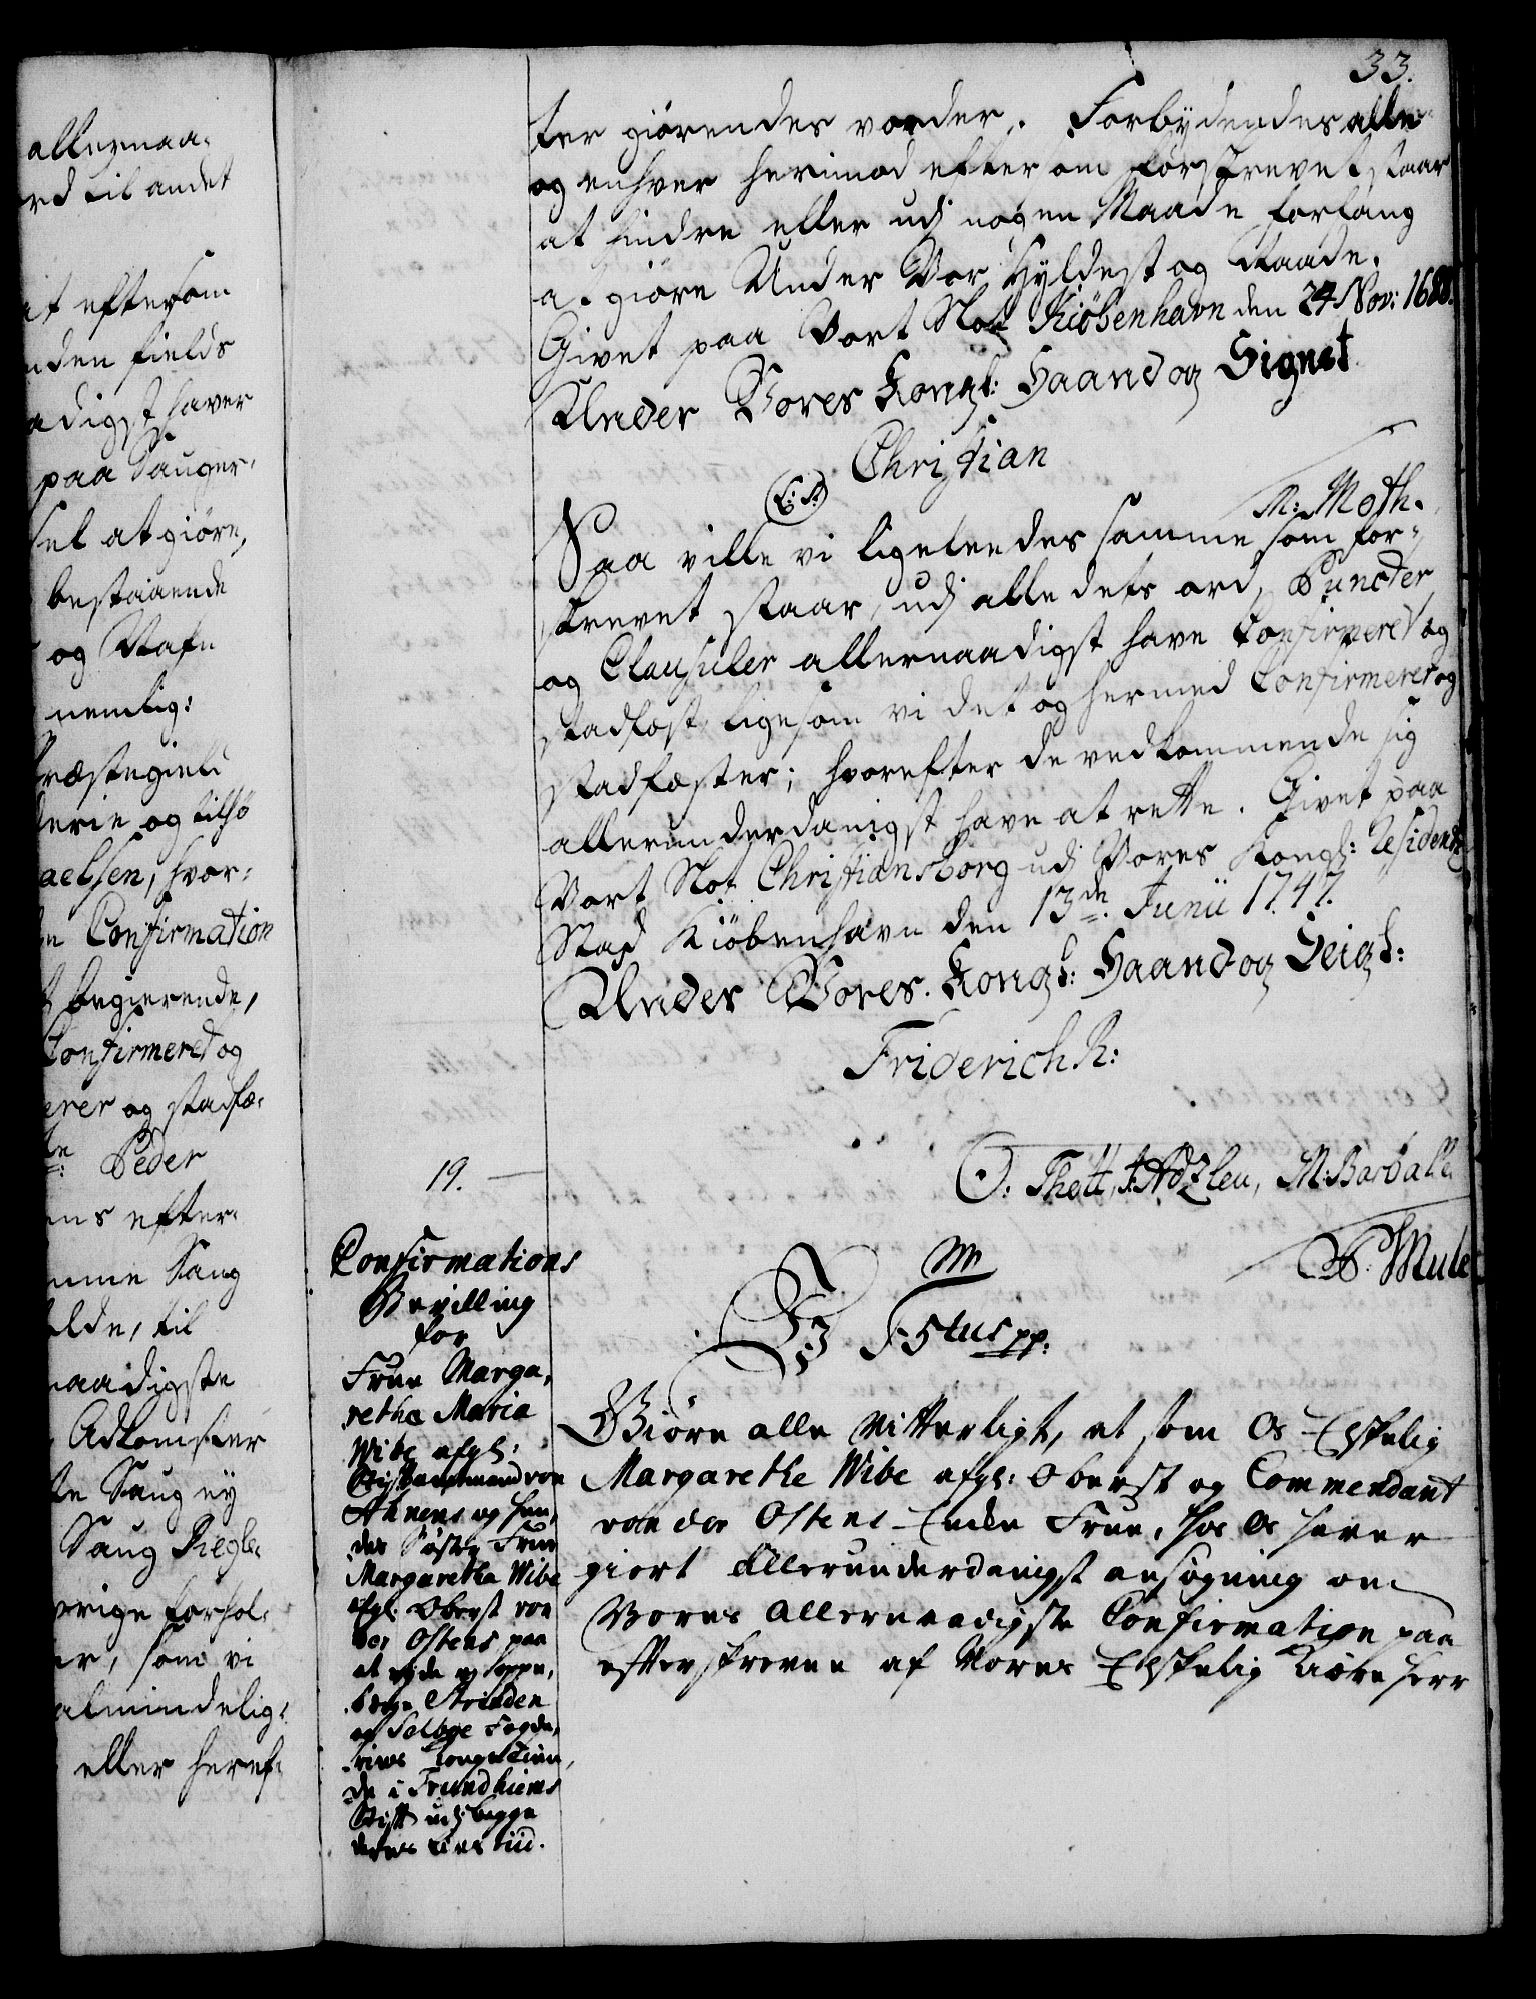 allernaa-
rd til andet
at eftersom
nden fields
adigst haver
paa Sauger,
sel at giöre,
bestaaende
og Rafn
nemlig:
Præstegield
derie og tilhö
aelsen, hvor-
n Confirmation
begierende,
Confirmeret og
erer og stadfæ-
Peder
ens efter-
mme Saug
olde, til
naadigste
Adkomster
te Saug ey
Saug Regle-
vrige forhol-
er, som vi
almindelig-
eller heref-
33.
ter giörendes vorder. Forbydendes alle
og enhver herimod efter som forskrevet staar
at hindre eller udi nogen Maade forfang
at giöre Under Vor Hyldest og Naade.
Givet paa Vort Slot Kiöbenhavn den 24 Nov: 1688.
Under Vores Kongl: Haand og Signet
Christian
(L: S.)
M: Moth.
Saa ville vi ligeleedes samme som for-
skrevet staar, udi alle dets ord, Puncter
og Clausuler allernaadigst have Confirmeret og
stadfæst, ligesom vi det og hermed Confirmerer og
stadfæster; hvorefter de vedkommende sig
allerunderdanigst have at rette. Givet paa
Vort Slot Christiansborg udi Vores Kongl: Residentz
Stad Kiöbenhavn den 13de Junii 1747.
Under Vores Kongl: Haand og Seigl:
Friderich R:
O: Thott, J: Adzleu, M: Barvalle
P: Mule
19.
Confirmations
Bevilling
for
Frue Marga-
retha Maria
Wibe afgl:
Stiftamtmand von
Ahnens og hen-
des Söster Frue
Margaretha Wibe
afgl: Oberst von
der Ostens paa
at nyde og oppe-
berge Strinden
og Selboe Fogde-
ries Konge Tien-
de i Trundhiems
Stift udj begge
deres Livs tiid.
Wi F: 5tus pp:
Giöre alle Vitterligt, at som Os Elskelig
Margarethe Wibe afgl: Oberst og Commendant
von der Ostens Encke Frue, hos Os haver
giort allerunderdanigst ansögning om
Vores allernaadigste Confirmation paa
efterskrevne af Vores Elskelig Kiære Herr